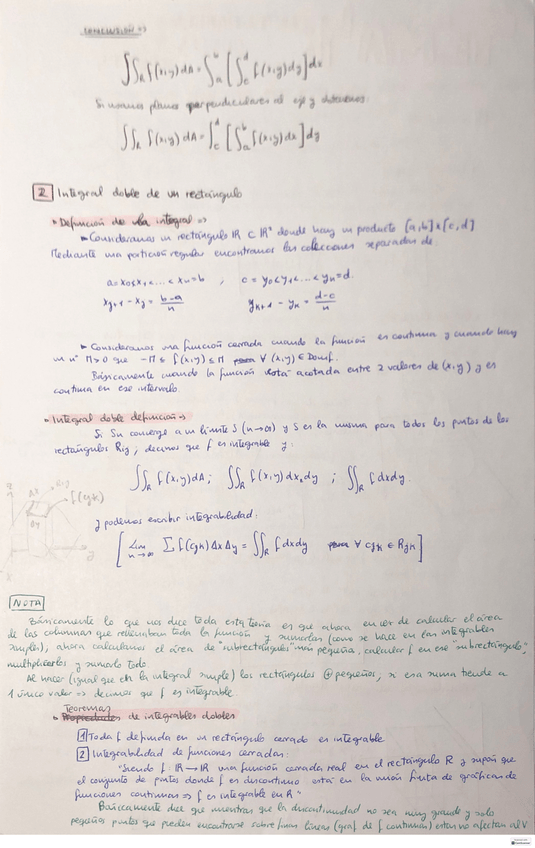 CONCLUSIÓN =>
∫∫_R f(x,y) dA = ∫_a^b [∫_c^d f(x,y) dy] dx
Si usamos planos perpendiculares al eje y obtenemos:
∫∫_R f(x,y) dA = ∫_c^d [∫_a^b f(x,y) dx] dy
2 Integral doble de un rectángulo
Definición de la integral =>
Consideramos un rectángulo R ⊂ R² donde hay un producto [a,b]x[c,d]
Mediante una partición regular encontramos las colecciones separadas de:
a=x₀≤x₁<...<xₙ=b , c=y₀<y₁<...<yₙ=d.
x_{j+1} - x_j = b-a/n y_{k+1} - y_k = d-c/n
Consideramos una función cerrada cuando la función es continua y cuando hay
un nº M>0 que -M ≤ f(x,y) ≤ M ∀ (x,y) ∈ Dom f.
Básicamente cuando la función está acotada entre 2 valores de (x,y) y es
continua en ese intervalo.
Integral doble definición =>
Si Sn converge a un límite S (n→∞) y S es la misma para todos los puntos de los
rectángulos Rij, decimos que f es integrable y:
∫∫_R f(x,y) dA ; ∫∫_R f(x,y) dx, dy ; ∫∫_R f dx dy.
f(cjk)
y podemos escribir integrabilidad:
[ lim n→∞ ∑ f(cjk) Δx Δy = ∫∫_R f dx dy ∀ cjk ∈ Rjk ]
NOTA
Básicamente lo que nos dice toda esta teoría es que ahora en vez de calcular el área
de las columnas que rellenaban toda la función y sumarlas (como se hace en las integrables
simples), ahora calculamos el área de "subrectángulos" más pequeña, calcular f en ese "subrectángulo",
multiplicarlos y sumarlo todo.
Al hacer (igual que en la integral simple) los rectángulos ⊕ pequeños, si esa suma tiende a
1 único valor => decimos que f es integrable.
Teoremas
Propiedades de integrables dobles
1 Toda f definida en un rectángulo cerrado es integrable
2 Integrabilidad de funciones cerradas:
"Siendo f: R → R una función cerrada real en el rectángulo R y supón que
el conjunto de puntos donde f es discontinuo está en la unión finita de gráficas de
funciones continuas => f es integrable en R"
Básicamente dice que mientras que la discontinuidad no sea muy grande y solo
pequeños puntos que pueden encontrarse sobre finas líneas (graf de f continuas) estas no afectan al V